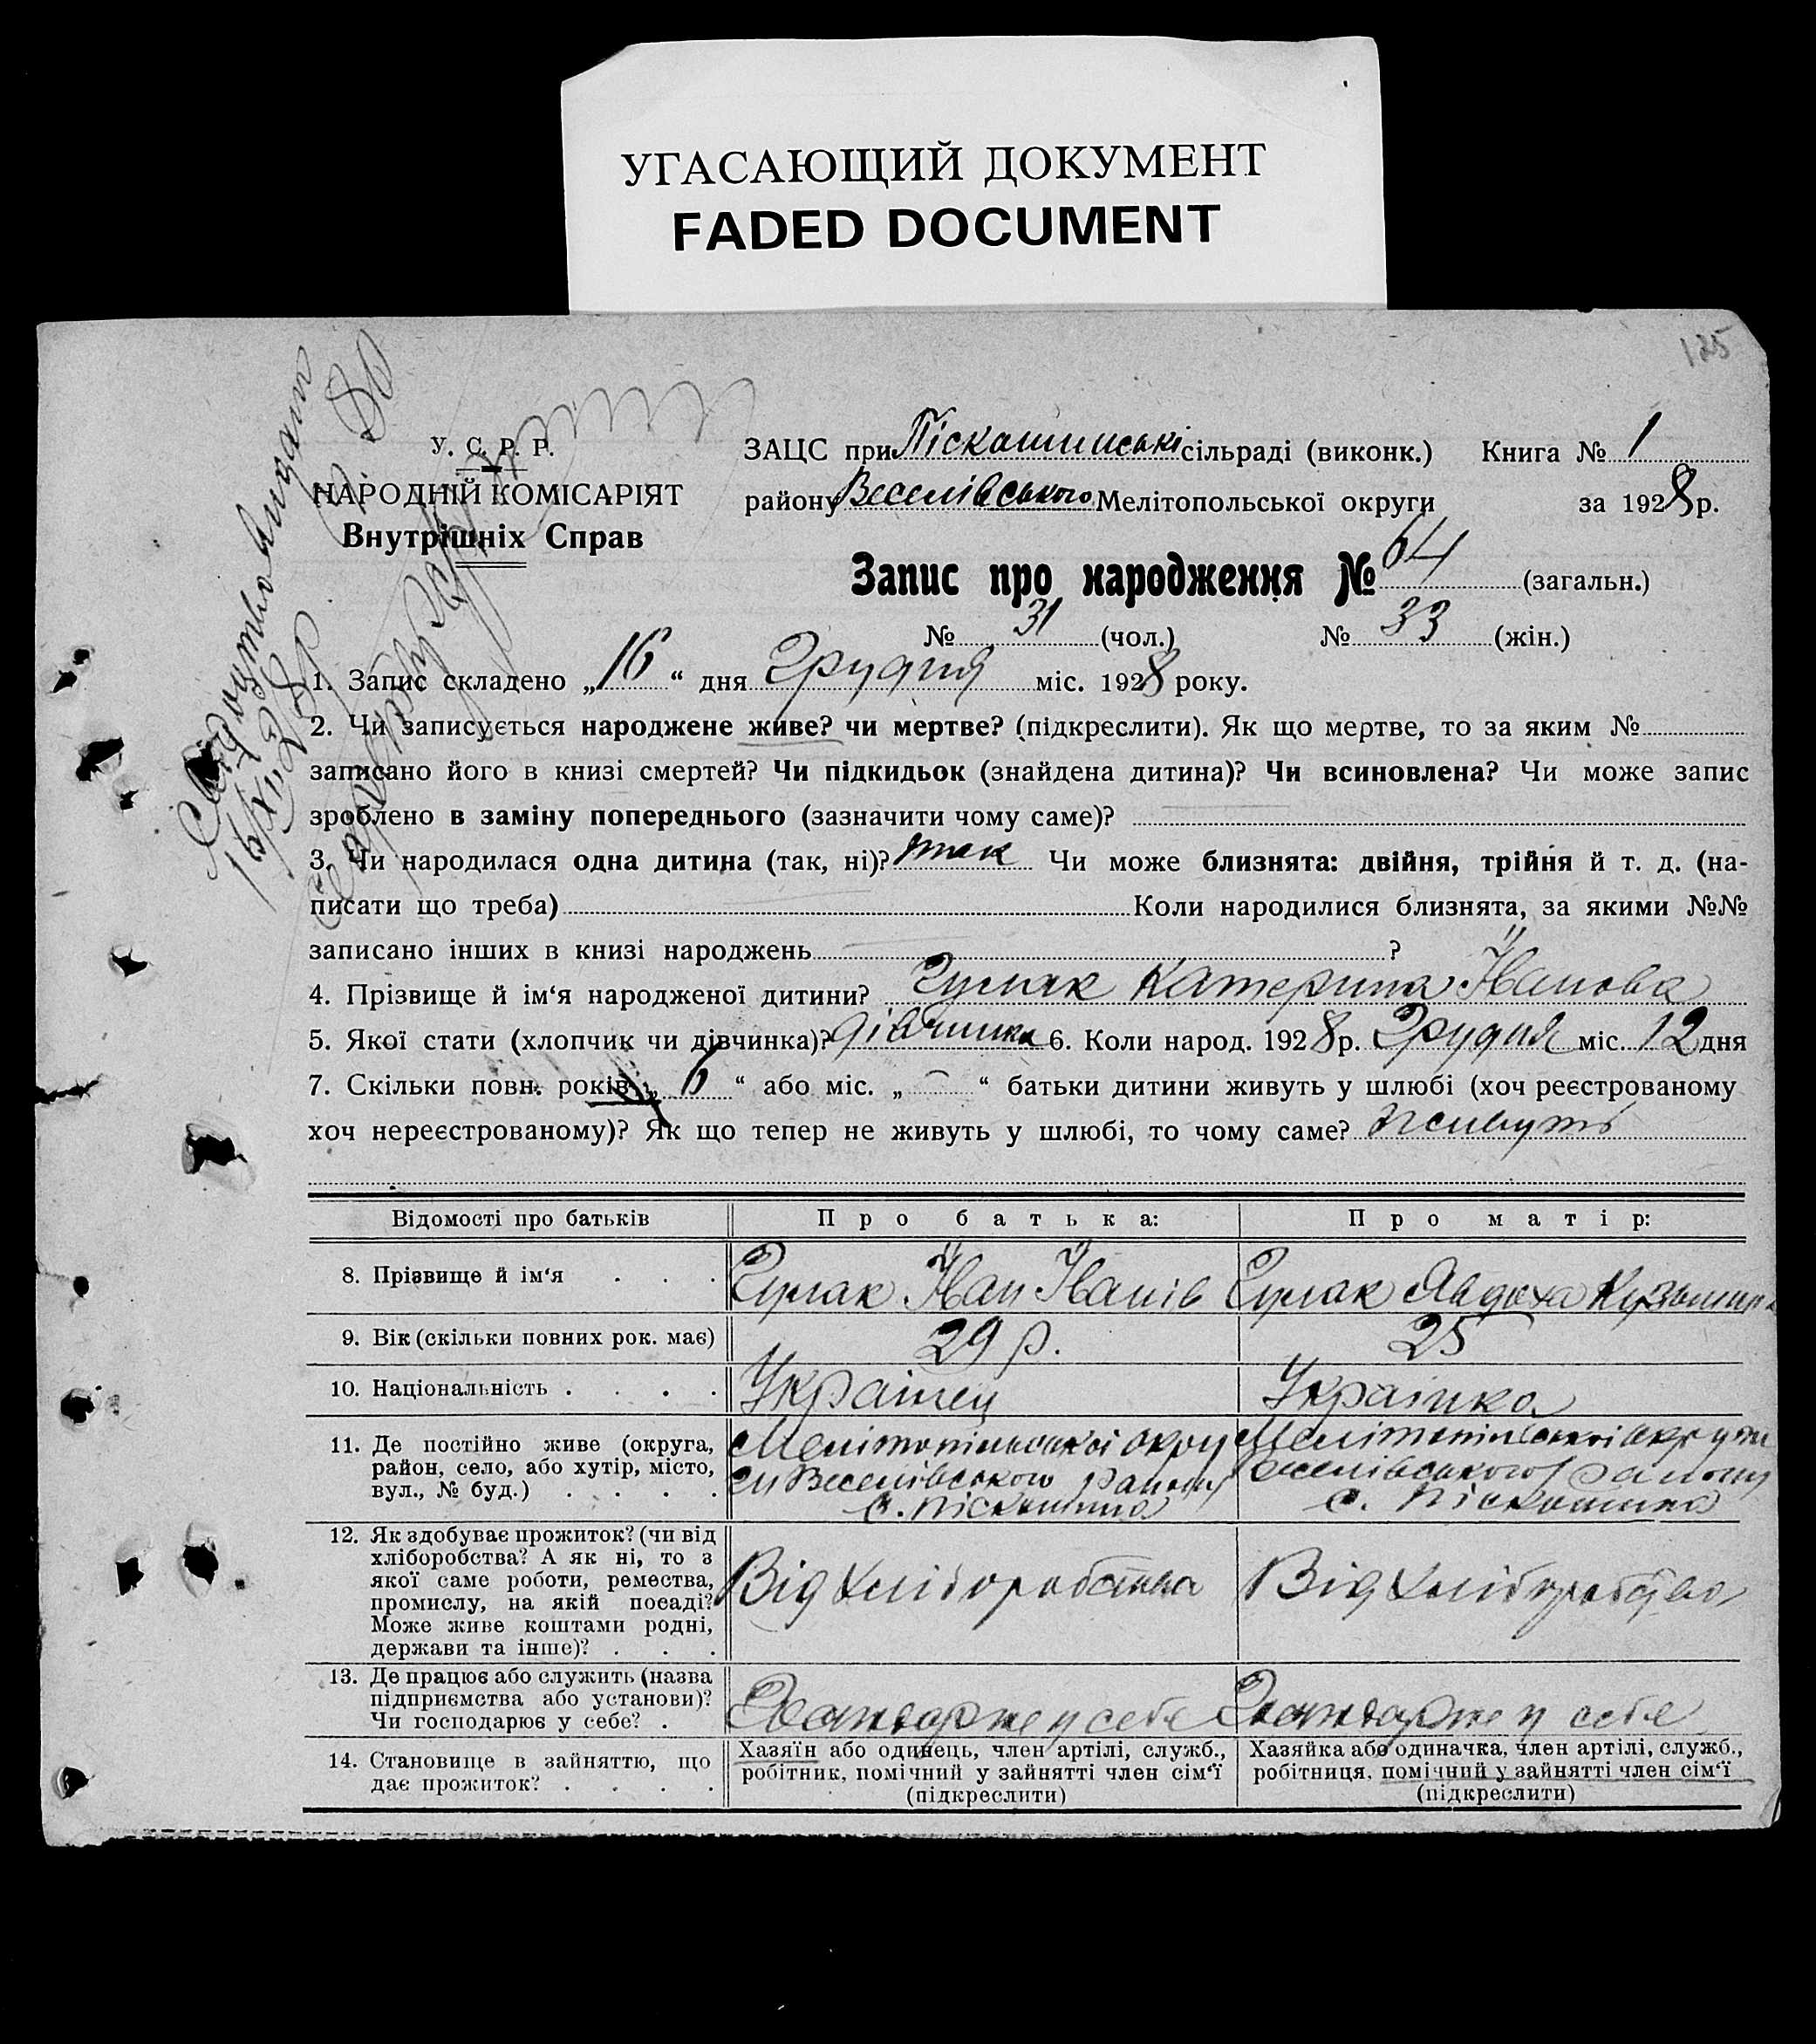 УГАСАЮЩИЙ ДОКУМЕНТ
FADED DOCUMENT
125
У. С. Р. Р.
НАРОДНІЙ КОМІСАРІЯТ
Внутрішніх Справ
ЗАЦС при Піскошинські сільраді (виконк.) Книга № 1
району Веселівського Мелітопольської округи за 1928 р.
Запис про народження № 64 (загальн.)
№ 31 (чол.) № 33 (жін.)
1. Запис складено „16“ дня Грудня міс. 1928 року.
2. Чи записується народжене живе? чи мертве? (підкреслити). Як що мертве, то за яким №
записано його в книзі смертей? Чи підкидьок (знайдена дитина)? Чи всиновлена? Чи може запис
зроблено в заміну попереднього (зазначити чому саме)?
3. Чи народилася одна дитина (так, ні)? так Чи може близнята: двійня, трійня й т. д. (на-
писати що треба) Коли народилися близнята, за якими №№
записано інших в книзі народжень ?
4. Прізвище й ім‘я народженої дитини? Гулак Катерина Іванова
5. Якої стати (хлопчик чи дівчинка)? дівчинка 6. Коли народ. 1928 р. Грудня міс. 12 дня
7. Скільки повн. років „ 6 “ або міс. „ — “ батьки дитини живуть у шлюбі (хоч реєстрованому
хоч нереєстрованому)? Як що тепер не живуть у шлюбі, то чому саме? живуть
Відомості про батьків Про батька: Про матір:
8. Прізвище й ім‘я . . . Гулак Іван Іванів Гулак Явдоха
9. Вік (скільки повних рок. має) 29 р. 25
10. Національність . . . . Українец Українка
11. Де постійно живе (округа, Мелітопільської окру Мелітопільської округи
район, село, або хутір, місто, ги Веселівського району Веселівського району
вул., № буд.) . . . . с. Піскошина с. Піскошина
12. Як здобуває прожиток? (чи від
хліборобства? А як ні, то з
якої саме роботи, ремества, Від хліборобства Від хліборобства
промислу, на якій посаді?
Може живе коштами родні,
держави та інше)? . . .
13. Де працює або служить (назва
підприємства або установи)?
Чи господарює у себе? . Господарює у себе Господарює у себе
14. Становище в зайняттю, що
дає прожиток? . . . .
Хазяїн або одинець, член артілі, служб.,
робітник, помічний у зайнятті член сім‘ї
(підкреслити)
Хазяйка або одиначка, член артілі, служб.,
робітниця, помічний у зайнятті член сім‘ї
(підкреслити)